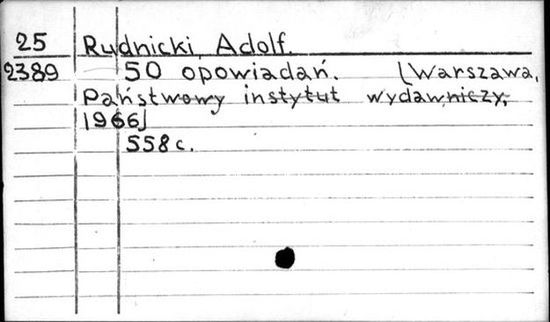 25 Rudnicki, Adolf.
2389 50 opowiadań. [Warszawa,
Państwowy instytut wydawniczy,
1966]
558 c.